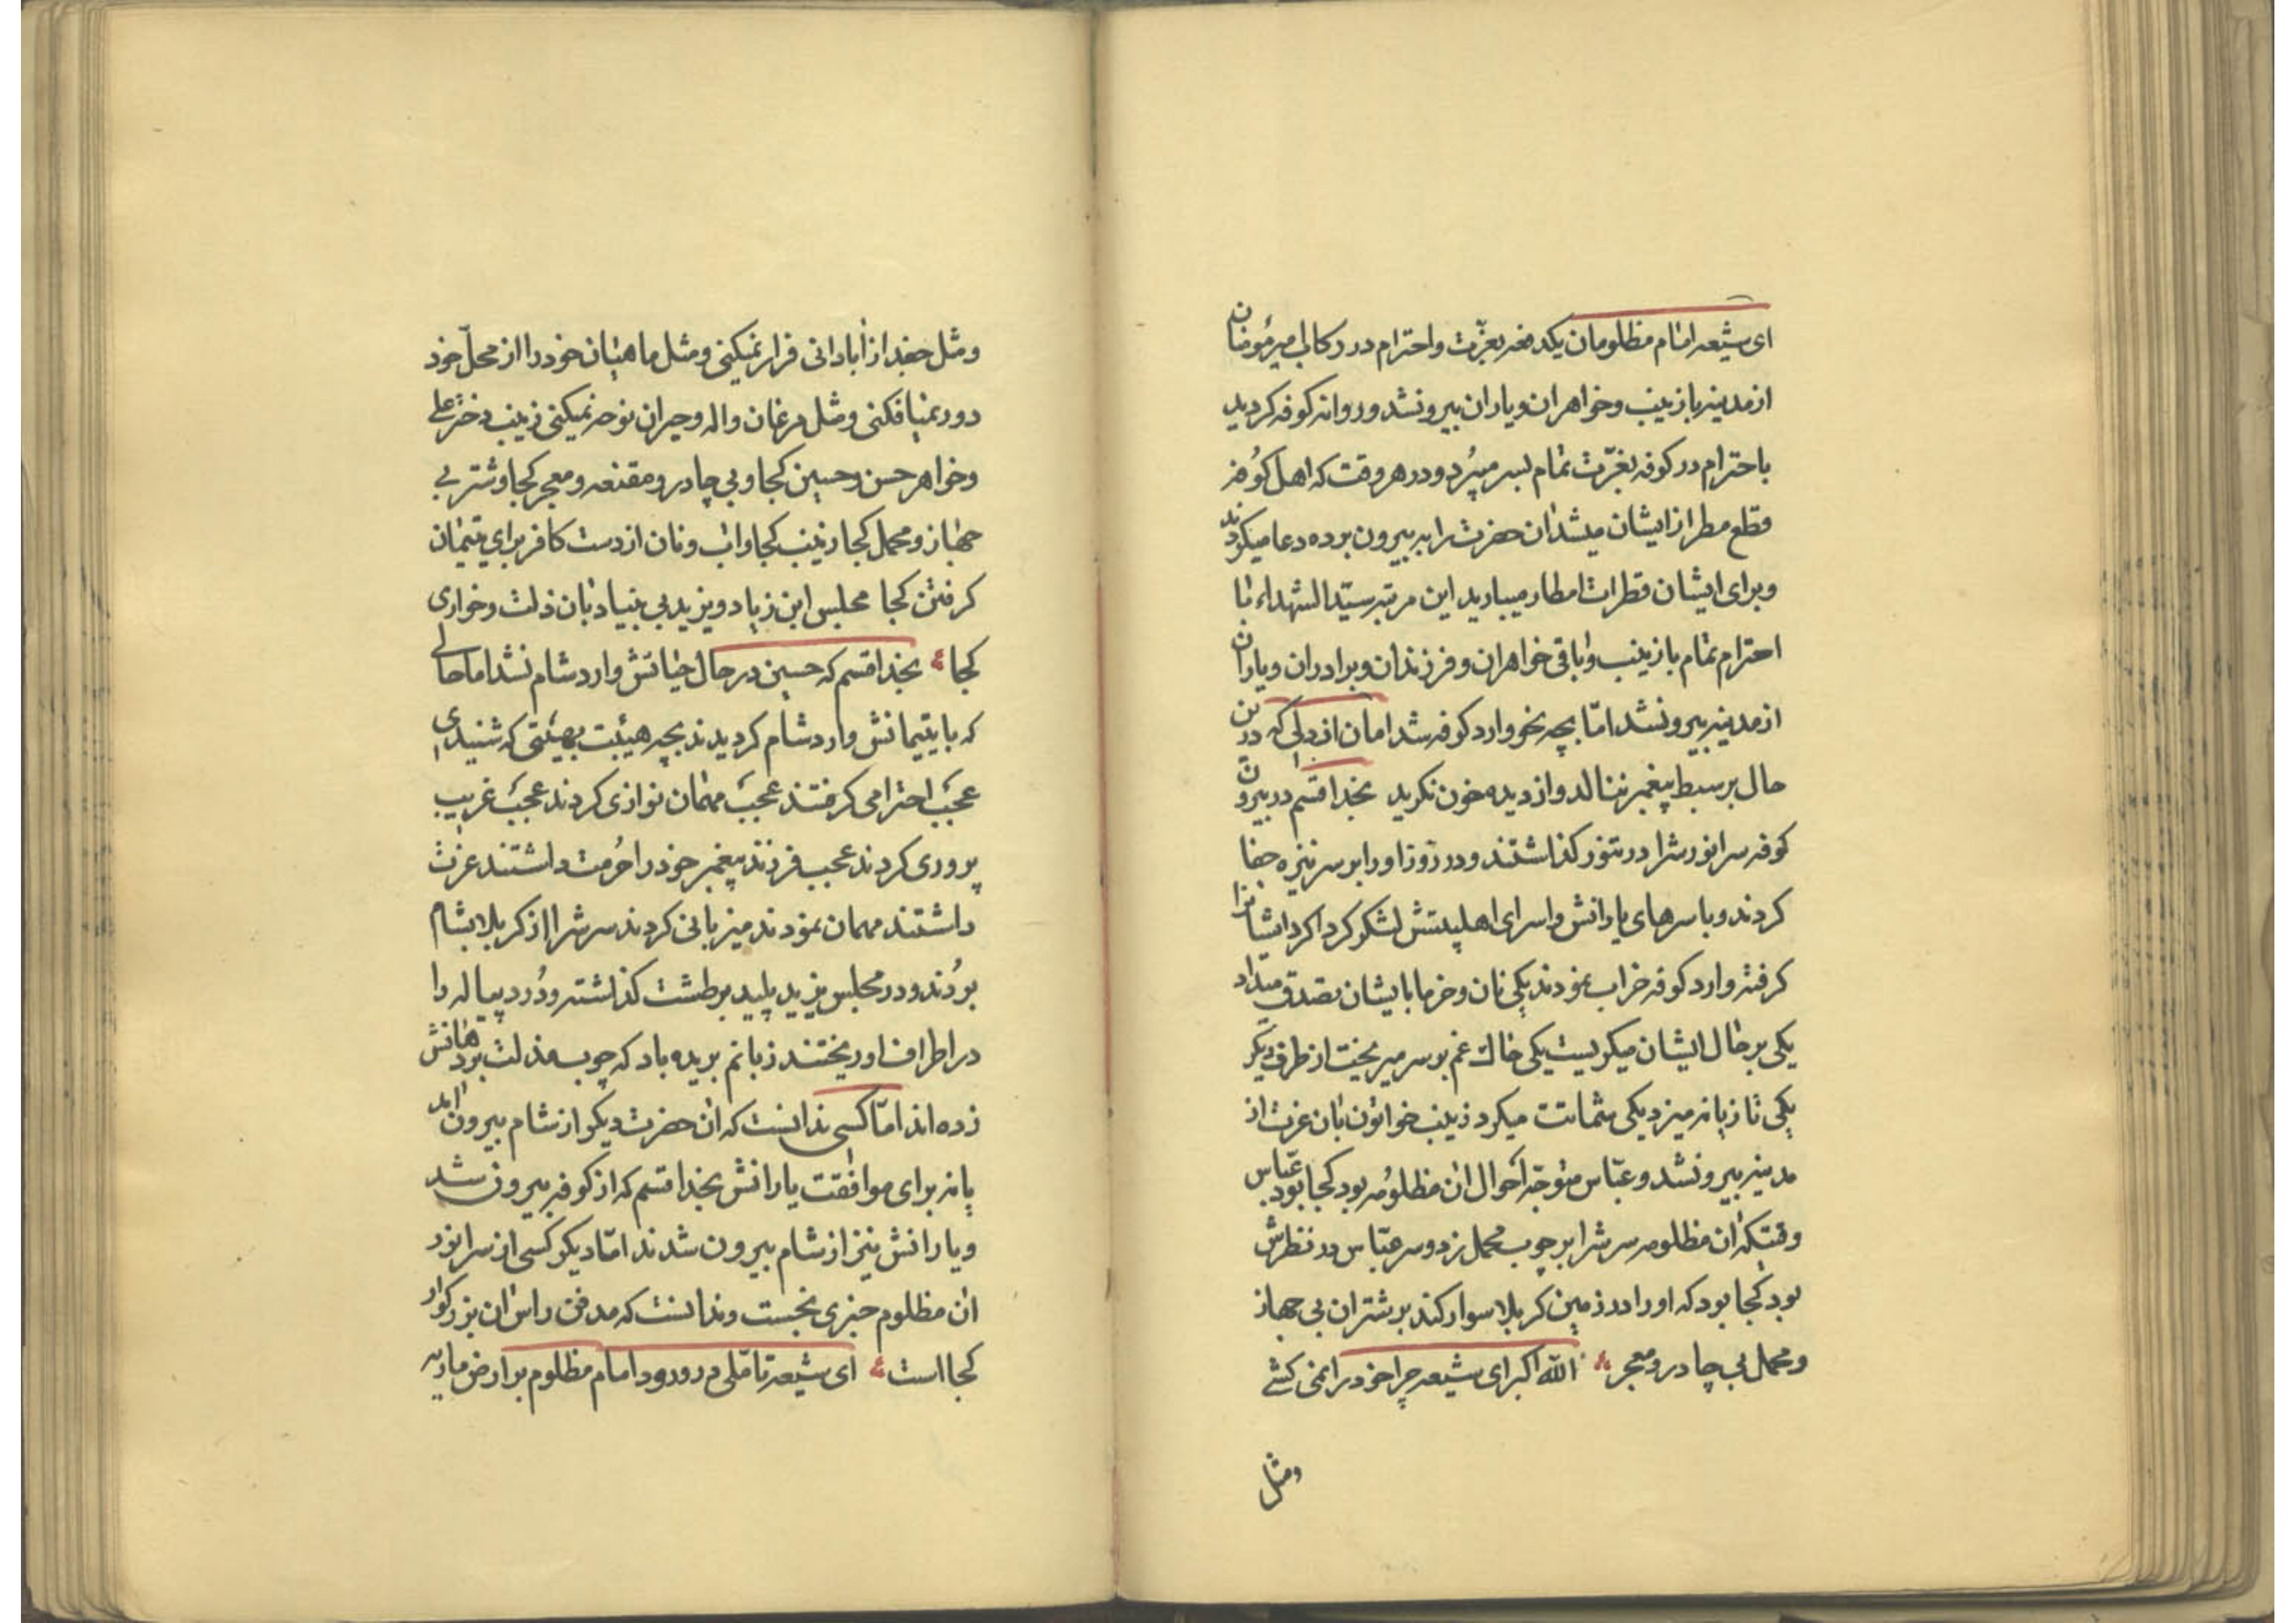 ای شیعه امام مظلومان یکدفعه بعزّت و احترام در رکاب امیرمؤمنان
از مدینه با زینب و خواهران و یاران بیرونشد و روانه کوفه کردید
باحترام در کوفه بعزّت تمام بسر میبُرد و در هر وقت که اهل کوُفه
قطع مطر از ایشان میشد ان حضرت را به بیرون برده دعا میکردند
و برای ایشان قطرات امطار میبارید این مرتبه سیّدالشهداء با
احترام تمام با زینب و باقی خواهران و فرزندان و برادران و یاران
از مدینه بیرونشد امّا بچه نحو وارد کوفه شد امان از دلی که درین
حال بر سبط پیغمبر ننالد و از دیده خون نکرید بخدا قسم در بیرون
کوفه سر انورش را در تنور کذاشتند و در روز او را بر سر نیزه جفا
کردند و با سرهای یارانش و اسرای اهلبیتش لشکر کرداکرد ایشانرا
کرفته وارد کوفه خراب نمودند یکی نان و خرما با یشان تصدق میداد
یکی بر حال ایشان میکریست یکی خاک غم بر سر میریخت از طرف دیکر
یکی تازیانه میزد یکی شماتت میکرد زینب خواتون بان عزت از
مدینه بیرونشد و عبّاس متوجّه احوال ان مظلوُمه بود کجا بود عبّاس
وقتیکه ان مظلومه سرش را بر چوب محمل زد و سر عبّاس در نظرش
بود کجا بود که او را در زمین کربلا سوار کند بر شتران بی جهاز
و محمل بی چادر و معجر الله اکبر ای شیعه چرا خود را نمی کشی
ومثل
و مثل جغد از آبادانی فرار نمیکنی و مثل ماهیان خود را از محلّ خود
دور نمیافکنی و مثل مرغان واله و حیران نوحه نمیکنی زینب دختر علی
و خواهر حسن و حسین کجا و بی چادر و مقنعه و معجر کجا و شتر بی
جهاز و محمل کجا زینب کجا و اب و نان از دست کافر برای یتیمان
کرفتن کجا مجلس ابن زیاد و یزید بی بنیاد بان ذلت و خواری
کجا بخدا قسم که حسین در حال حیاتش وارد شام نشد اما حالی
که با یتیمانش وارد شام کردیدند بچه هیئت بهیئتی که شنیدی
عجب احترامی کرفتند عجب مهمان نوازی کردند عجب غریب
پروری کردند عجب فرزند پیغمبر خود را حُرمت داشتند عزت
داشتند مهمان نمودند میزبانی کردند سرش را از کربلا بشام
برُدند و در مجلس یزید پلید بر طشت کذاشته و دُرد پیاله را
در اطراف او ریختند زبانم بریده باد که چوب مذلت بر دهانش
زده اند امّا کسی ندانست که ان حضرت دیکر از شام بیرون امد
یا نه برای موافقت یارانش بخدا قسم که از کوفه بیرون شد
و یارانش نیز از شام بیرون شدند امّا دیکر کسی از سر انور
ان مظلوم خبری نجست و ندانست که مدفن راس ان بزرکوار
کجا است ای شیعه تاملی در ورود امام مظلوم بر ارض ماریه